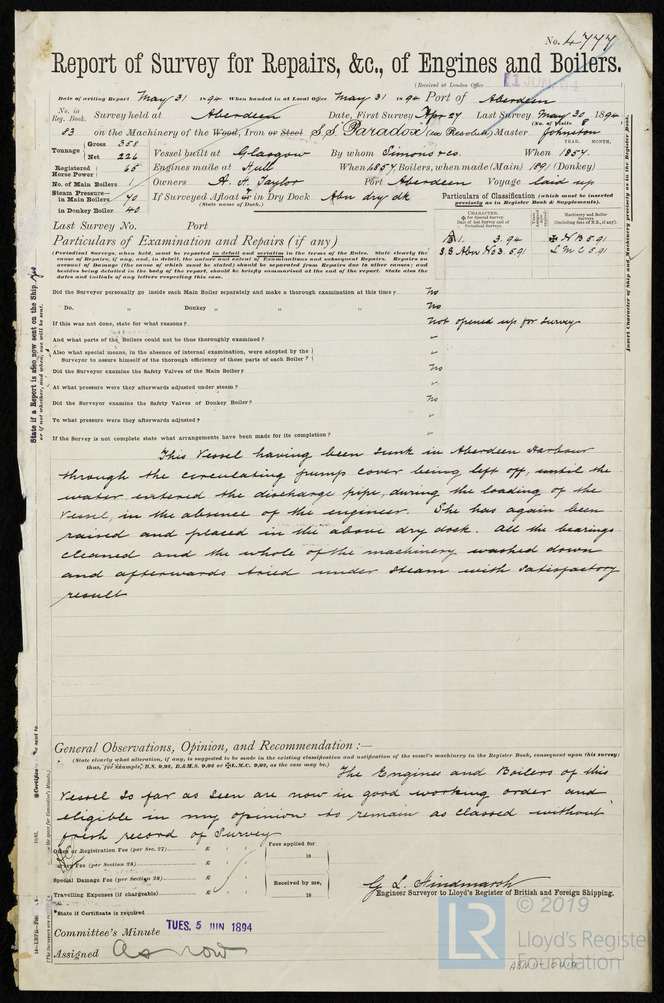 No. 4777
Report of Survey for Repairs, &c., of Engines and Boilers.
(Received at London Office 1 JUN. 94)
Date of writing Report May 31 1894 When handed in at Local Office May 31 1894 Port of Aberdeen
No. in Reg. Book. Survey held at Aberdeen Date, First Survey Apr 27 Last Survey May 30 1894
(No. of Visits 8)
83 on the Machinery of the Wood, Iron or Steel S.S. Paradox (ex Resolute) Master Johnston
Tonnage Gross 358
Net 226
Vessel built at Glasgow By whom Simons & Co. When 1857
YEAR. MONTH.
Registered Horse Power 65 Engines made at Hull When 1857 Boilers, when made (Main) 1891 (Donkey)
No. of Main Boilers 1 Owners A. H. Taylor Port Aberdeen Voyage laid up
Steam Pressure—
in Main Boilers 70 If Surveyed Afloat or in Dry Dock Abn dry dk
(State name of Dock.)
in Donkey Boiler 40
Particulars of Classification (which must be inserted precisely as in Register Book & Supplements).
CHARACTER.
for Special Survey
Date of last Survey and of Periodical Surveys.
Machinery and Boiler Surveys
(including date of N.B., if any).
Last Survey No. Port
B 1. 3.94 N B 5.91
S.S. Abn No 3. 5.91 L M C 5.91
Particulars of Examination and Repairs (if any)
(Periodical Surveys, when held, must be reported in detail and seriatim in the terms of the Rules. State clearly the
cause of Repairs, if any, and, in detail, the nature and extent of Examinations and subsequent Repairs. Repairs on
account of Damage (the cause of which must be stated) should be separated from Repairs due to other causes; and
besides being detailed in the body of the report, should be briefly summarised at the end of the report. State also the
dates and initials of any letters respecting this case.
Did the Surveyor personally go inside each Main Boiler separately and make a thorough examination at this time? No
Do. „ Donkey „ „ „ No
If this was not done, state for what reasons? Not opened up for survey
And what parts of the Boilers could not be thoroughly examined? "
Also what special means, in the absence of internal examination, were adopted by the
Surveyor to assure himself of the thorough efficiency of those parts of each Boiler? "
Did the Surveyor examine the Safety Valves of the Main Boiler? No
At what pressure were they afterwards adjusted under steam? "
Did the Surveyor examine the Safety Valves of Donkey Boiler? No
To what pressure were they afterwards adjusted? "
If the Survey is not complete state what arrangements have been made for its completion? "
This Vessel having been sunk in Aberdeen Harbour
through the circulating pump cover being left off, until the
water entered the discharge pipe, during the loading of the
Vessel, in the absence of the engineer. She has again been
raised and placed in the above dry dock. All the bearings
cleaned and the whole of the machinery washed down
and afterwards tried under steam with satisfactory
result
General Observations, Opinion, and Recommendation:—
(State clearly what alteration, if any, is suggested to be made in the existing classification and notification of the vessel's machinery in the Register Book, consequent upon this survey;
thus, for example, B.S. 9,93, B.&M.S. 9,93 or L.M.C. 9,93, as the case may be.)
The Engines and Boilers of this
Vessel so far as seen are now in good working order and
eligible in my opinion to remain as classed without
fresh record of Survey
Office or Registration Fee (per Sec. 27) £ : : Fees applied for
Survey Fee (per Section 28) £ : : 18
Special Damage Fee (per Section 28) £ : : Received by me,
Travelling Expenses (if chargeable) £ : : 18
G. L. Hindmarsh
Engineer Surveyor to Lloyd's Register of British and Foreign Shipping.
*State if Certificate is required
Committee's Minute TUES. 5 JUN 1894
Assigned As now
© 2019
LR
Lloyd's Register
Foundation
State if a Report is also now sent on the Ship No
or if not whether, and when, one will be sent.
Insert Character of Ship and Machinery precisely as in the Register Book.